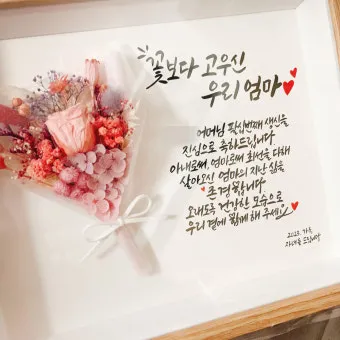 꽃보다 고우신
우리 엄마
어머님 팔십번째 생신을
진심으로 축하드립니다
아내로써, 엄마로써 최선을 다해
살아오신 엄마의 지난 삶을
존경합니다
오래도록 건강한 모습으로
우리 곁에 함께 해 주세요
2023. 가을,
자녀들 드립니다